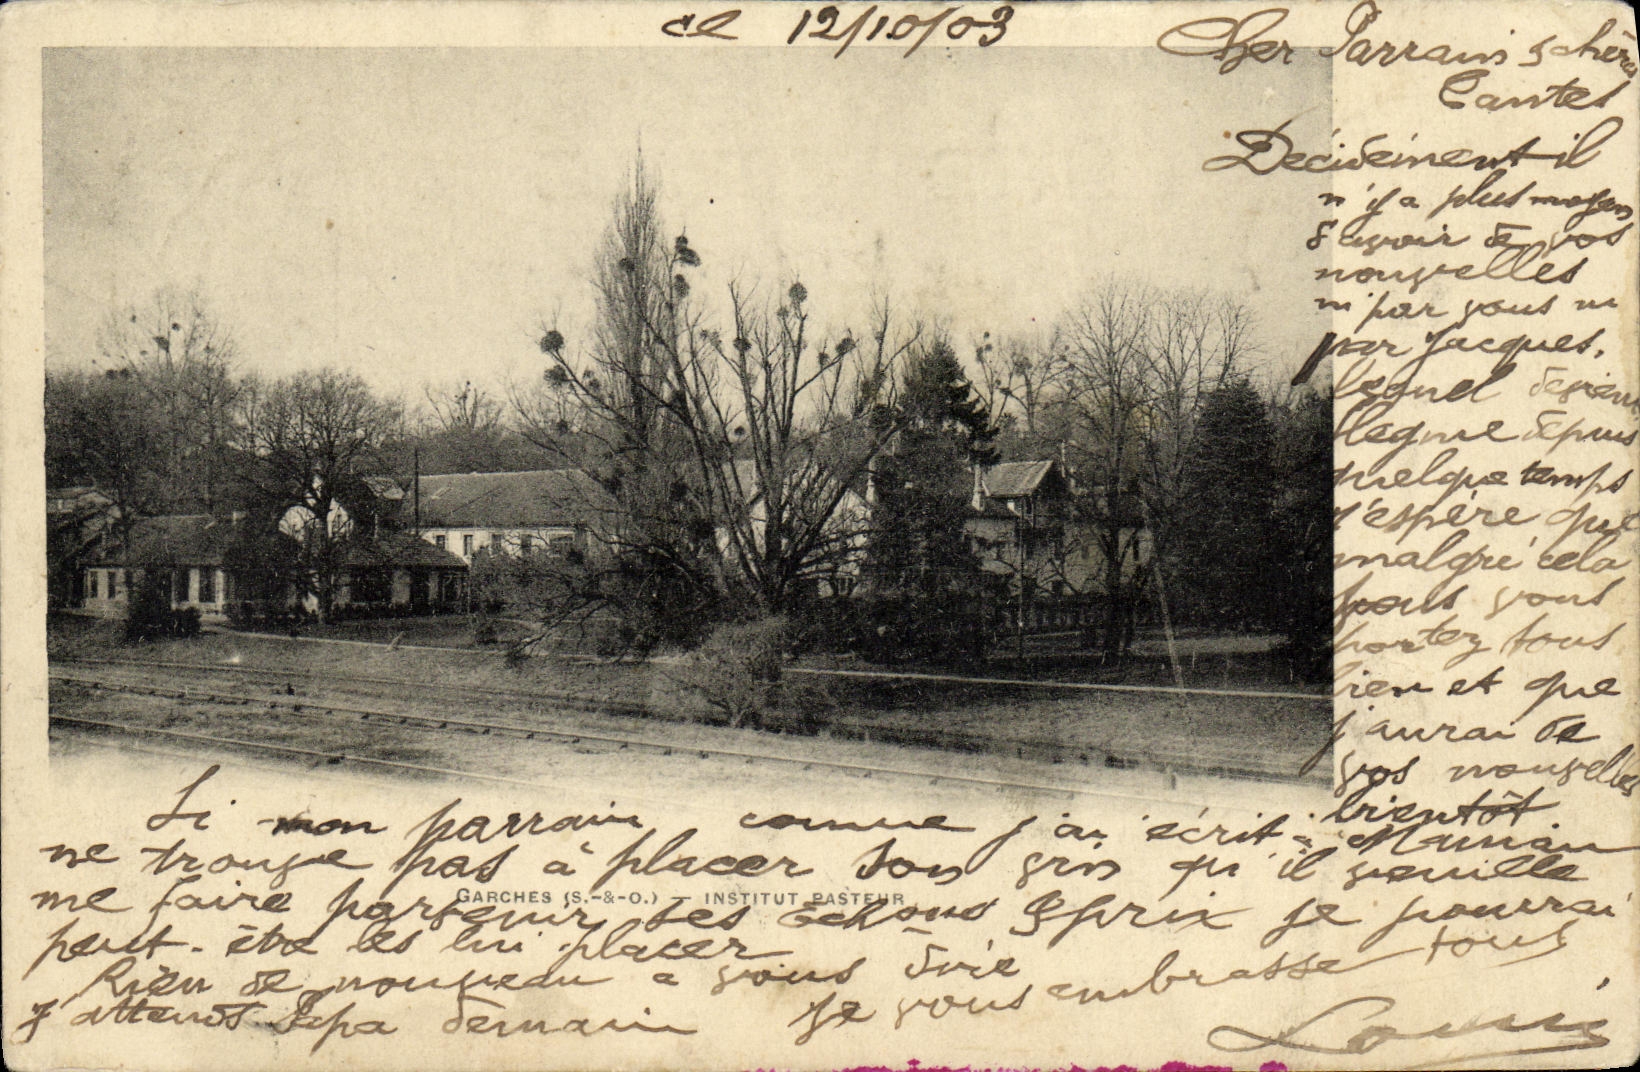 ce 12/10/03
Cher Parrain & chères
Tantes
Decidément il
n'y a plus moyen
d'avoir de vos
nouvelles
ni par vous ni
par Jacques,
lequel devient
flegme depuis
quelque temps
j'espère que
malgré cela
vous
portez tous
bien et que
j'aurai de
vos nouvelles
bientôt
Si mon parrain, comme j'ai écrit à Maman
ne trouve pas à placer son vin qu'il veuille
me faire parvenir des échons & prix je pourrai
GARCHES (S.-&-O.) — INSTITUT PASTEUR
peut-être les lui placer
Rien de nouveau a vous dire
J'attends Papa demain Je vous embrasse tous
Louis